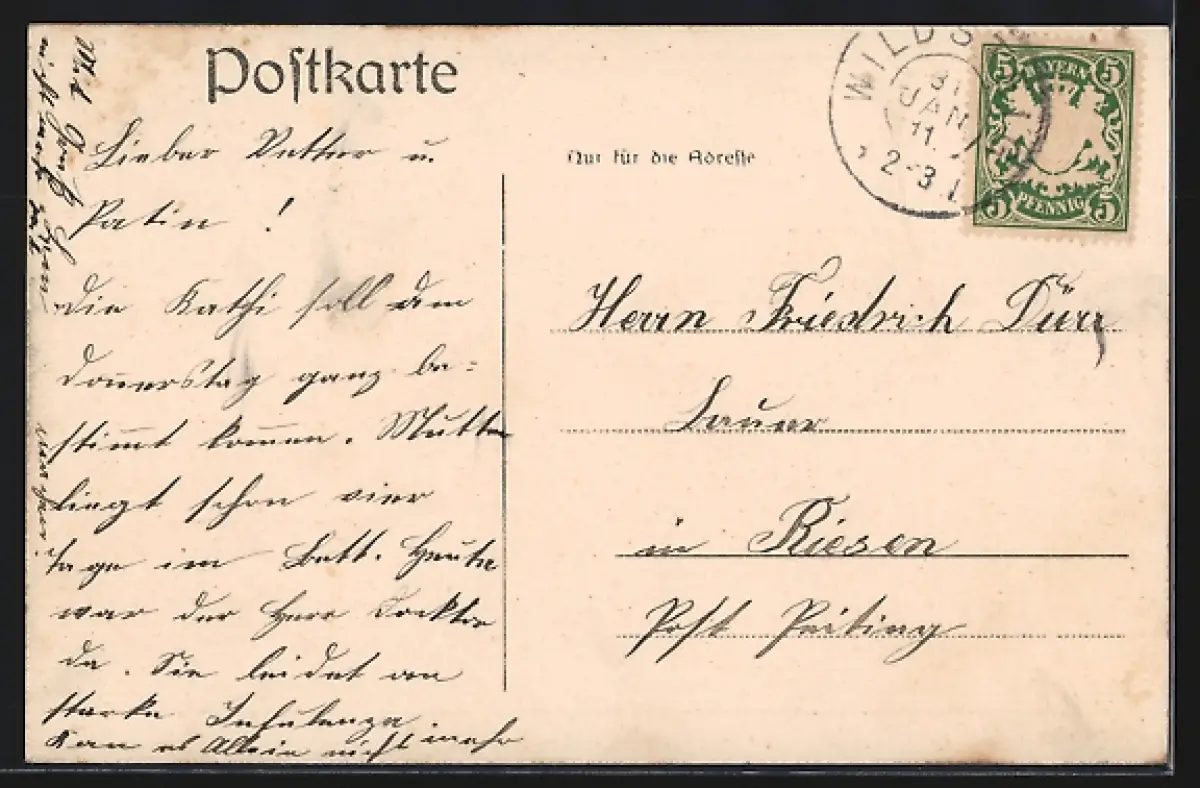 Postkarte
Nur für die Adresse
WILDS
31
JAN
11.
2-3
5 5
BAYERN
PFENNIG
5 5
Lieber Vetter u.
Patin !
Die Kathi soll am
Donnerstag ganz be=
stimmt kommen. Mutter
liegt schon vier
Tage im Bett. Heute
war der Herr Docktor
da. Sie leidet an
starke Infulenza.
Kan es Allein nicht mehr
Mit Gruß
Herrn Friedrich Dürr
Bauer
in Riesen
Post Peiting